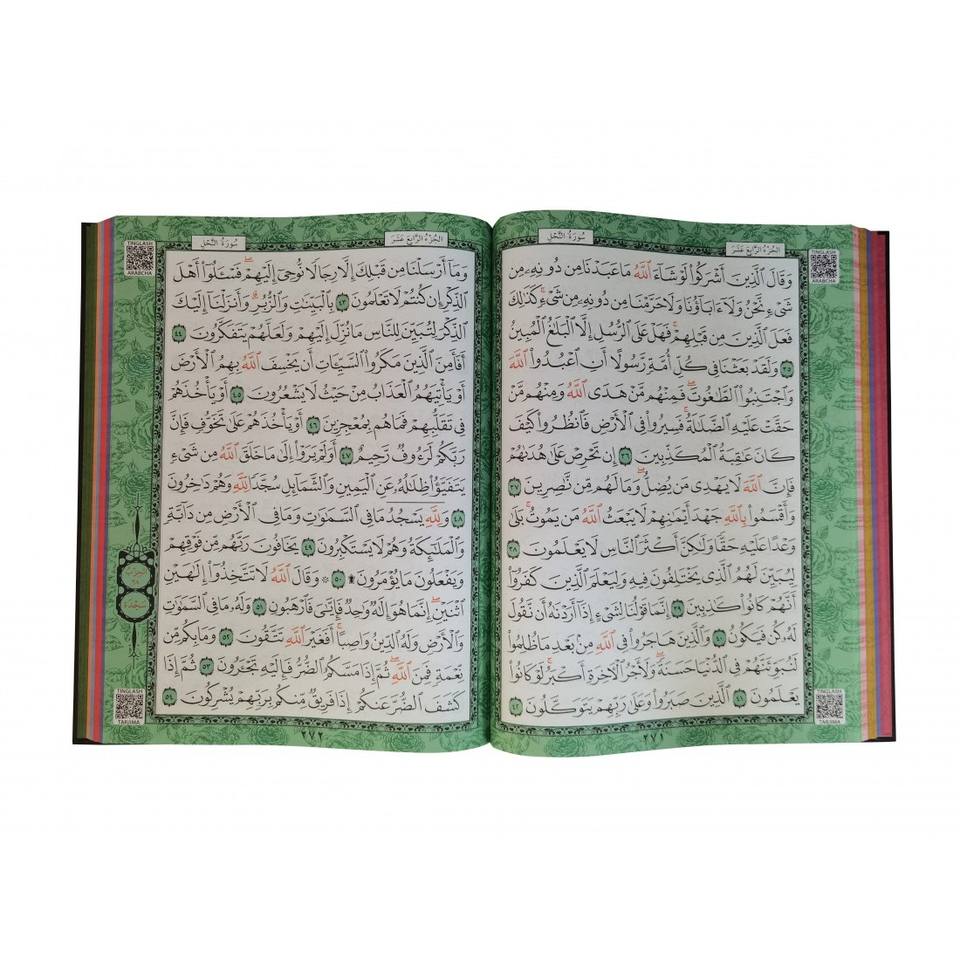 الجُزْءُ الرَّابِعَ عَشَرَ
سُورَةُ النَّحْلِ
TINGLASH
ARABCHA
وَقَالَ ٱلَّذِينَ أَشْرَكُوا۟ لَوْ شَآءَ ٱللَّهُ مَا عَبَدْنَا مِن دُونِهِۦ مِن
شَىْءٍ نَّحْنُ وَلَآ ءَابَآؤُنَا وَلَا حَرَّمْنَا مِن دُونِهِۦ مِن شَىْءٍ ۚ كَذَٰلِكَ
فَعَلَ ٱلَّذِينَ مِن قَبْلِهِمْ ۚ فَهَلْ عَلَى ٱلرُّسُلِ إِلَّا ٱلْبَلَٰغُ ٱلْمُبِينُ
٣٥ وَلَقَدْ بَعَثْنَا فِى كُلِّ أُمَّةٍ رَّسُولًا أَنِ ٱعْبُدُوا۟ ٱللَّهَ
وَٱجْتَنِبُوا۟ ٱلطَّٰغُوتَ ۖ فَمِنْهُم مَّنْ هَدَى ٱللَّهُ وَمِنْهُم مَّنْ
حَقَّتْ عَلَيْهِ ٱلضَّلَٰلَةُ ۚ فَسِيرُوا۟ فِى ٱلْأَرْضِ فَٱنظُرُوا۟ كَيْفَ
كَانَ عَٰقِبَةُ ٱلْمُكَذِّبِينَ ٣٦ إِن تَحْرِصْ عَلَىٰ هُدَىٰهُمْ
فَإِنَّ ٱللَّهَ لَا يَهْدِى مَن يُضِلُّ ۖ وَمَا لَهُم مِّن نَّٰصِرِينَ ٣٧
وَأَقْسَمُوا۟ بِٱللَّهِ جَهْدَ أَيْمَٰنِهِمْ ۙ لَا يَبْعَثُ ٱللَّهُ مَن يَمُوتُ ۚ بَلَىٰ
وَعْدًا عَلَيْهِ حَقًّا وَلَٰكِنَّ أَكْثَرَ ٱلنَّاسِ لَا يَعْلَمُونَ ٣٨
لِيُبَيِّنَ لَهُمُ ٱلَّذِى يَخْتَلِفُونَ فِيهِ وَلِيَعْلَمَ ٱلَّذِينَ كَفَرُوٓا۟
أَنَّهُمْ كَانُوا۟ كَٰذِبِينَ ٣٩ إِنَّمَا قَوْلُنَا لِشَىْءٍ إِذَآ أَرَدْنَٰهُ أَن نَّقُولَ
لَهُۥ كُن فَيَكُونُ ٤٠ وَٱلَّذِينَ هَاجَرُوا۟ فِى ٱللَّهِ مِنۢ بَعْدِ مَا ظُلِمُوا۟
لَنُبَوِّئَنَّهُمْ فِى ٱلدُّنْيَا حَسَنَةً ۖ وَلَأَجْرُ ٱلْءَاخِرَةِ أَكْبَرُ ۚ لَوْ كَانُوا۟
يَعْلَمُونَ ٤١ ٱلَّذِينَ صَبَرُوا۟ وَعَلَىٰ رَبِّهِمْ يَتَوَكَّلُونَ ٤٢
TINGLASH
TARJIMA
٢٧١
الجُزْءُ الرَّابِعَ عَشَرَ
سُورَةُ النَّحْلِ
TINGLASH
ARABCHA
وَمَآ أَرْسَلْنَا مِن قَبْلِكَ إِلَّا رِجَالًا نُّوحِىٓ إِلَيْهِمْ ۚ فَسْـَٔلُوٓا۟ أَهْلَ
ٱلذِّكْرِ إِن كُنتُمْ لَا تَعْلَمُونَ ٤٣ بِٱلْبَيِّنَٰتِ وَٱلزُّبُرِ ۗ وَأَنزَلْنَآ إِلَيْكَ
ٱلذِّكْرَ لِتُبَيِّنَ لِلنَّاسِ مَا نُزِّلَ إِلَيْهِمْ وَلَعَلَّهُمْ يَتَفَكَّرُونَ ٤٤
أَفَأَمِنَ ٱلَّذِينَ مَكَرُوا۟ ٱلسَّيِّـَٔاتِ أَن يَخْسِفَ ٱللَّهُ بِهِمُ ٱلْأَرْضَ
أَوْ يَأْتِيَهُمُ ٱلْعَذَابُ مِنْ حَيْثُ لَا يَشْعُرُونَ ٤٥ أَوْ يَأْخُذَهُمْ
فِى تَقَلُّبِهِمْ فَمَا هُم بِمُعْجِزِينَ ٤٦ أَوْ يَأْخُذَهُمْ عَلَىٰ تَخَوُّفٍ فَإِنَّ
رَبَّكُمْ لَرَءُوفٌ رَّحِيمٌ ٤٧ أَوَلَمْ يَرَوْا۟ إِلَىٰ مَا خَلَقَ ٱللَّهُ مِن شَىْءٍ
يَتَفَيَّؤُا۟ ظِلَٰلُهُۥ عَنِ ٱلْيَمِينِ وَٱلشَّمَآئِلِ سُجَّدًا لِّلَّهِ وَهُمْ دَٰخِرُونَ
٤٨ وَلِلَّهِ يَسْجُدُ مَا فِى ٱلسَّمَٰوَٰتِ وَمَا فِى ٱلْأَرْضِ مِن دَآبَّةٍ
وَٱلْمَلَٰٓئِكَةُ وَهُمْ لَا يَسْتَكْبِرُونَ ٤٩ يَخَافُونَ رَبَّهُم مِّن فَوْقِهِمْ
وَيَفْعَلُونَ مَا يُؤْمَرُونَ ۩ ٥٠ ۞ وَقَالَ ٱللَّهُ لَا تَتَّخِذُوٓا۟ إِلَٰهَيْنِ
ٱثْنَيْنِ ۖ إِنَّمَا هُوَ إِلَٰهٌ وَٰحِدٌ ۖ فَإِيَّٰىَ فَٱرْهَبُونِ ٥١ وَلَهُۥ مَا فِى ٱلسَّمَٰوَٰتِ
وَٱلْأَرْضِ وَلَهُ ٱلدِّينُ وَاصِبًا ۚ أَفَغَيْرَ ٱللَّهِ تَتَّقُونَ ٥٢ وَمَا بِكُم مِّن
نِّعْمَةٍ فَمِنَ ٱللَّهِ ۖ ثُمَّ إِذَا مَسَّكُمُ ٱلضُّرُّ فَإِلَيْهِ تَجْـَٔرُونَ ٥٣ ثُمَّ إِذَا
كَشَفَ ٱلضُّرَّ عَنكُمْ إِذَا فَرِيقٌ مِّنكُم بِرَبِّهِمْ يُشْرِكُونَ ٥٤
سجدة
TINGLASH
TARJIMA
٢٧٢